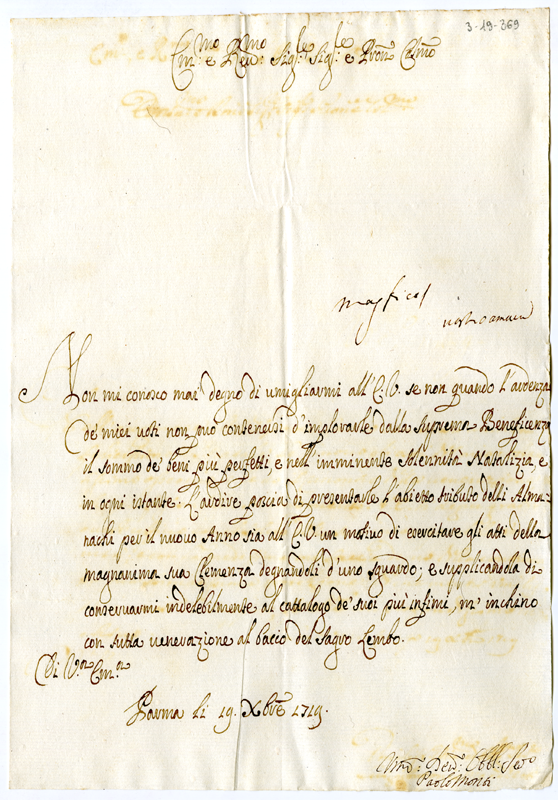 3-19-369
Em.mo e Rev.mo Sig.le Sig.le e Pron Colmo
Non mi conosco mai degno di umigliarmi all'E.V. se non quando l'ardenza
de' miei voti non può contenersi d'implorarle dalla suprema Beneficenza
il sommo de' beni più perfetti, e nell'imminente solennità Natalizia, e
in ogni istante. L'ardire poscia di presentarle l'abietto tributo delli Alma
nachi per il nuovo Anno sia all'E.V. un motivo di esercitare gli atti della
magnanima sua Clemenza degnandoli d'uno sguardo; e supplicandola di
conservarmi indelebilmente al cattalogo de' suoi più infimi, m'inchino
con tutta venerazione al bacio del Sagro Lembo.
Di V.ra Em.a
Parma li 19. Xbre 1719.
Um.o Dev.o Obbl. Ser.o
Paolo Monti